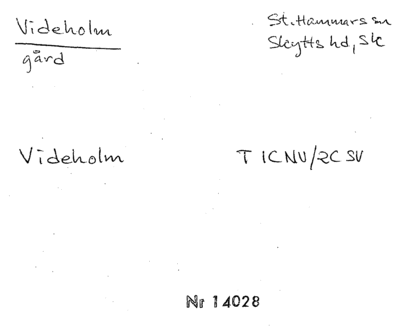 Videholm
gård
St. Hammars sn
Skytts hd, Sk
Videholm
T 1C NV/2C SV
Nr 14028